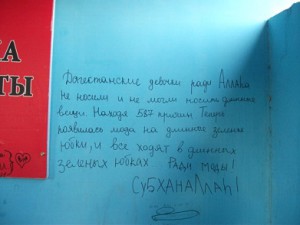 НА
ТЫ
Дагестанские девочки ради Аллаха
не носили и не могли носить длинные
вещи. Находя 587 причин. Теперь
появилась мода на длинные зеленые
юбки, и все ходят в длинных
зеленых юбках Ради моды!
СУБХАНАЛЛАh!